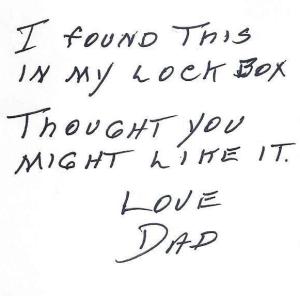 I FOUND THIS
IN MY LOCK BOX
THOUGHT YOU
MIGHT LIKE IT.
LOVE
DAD